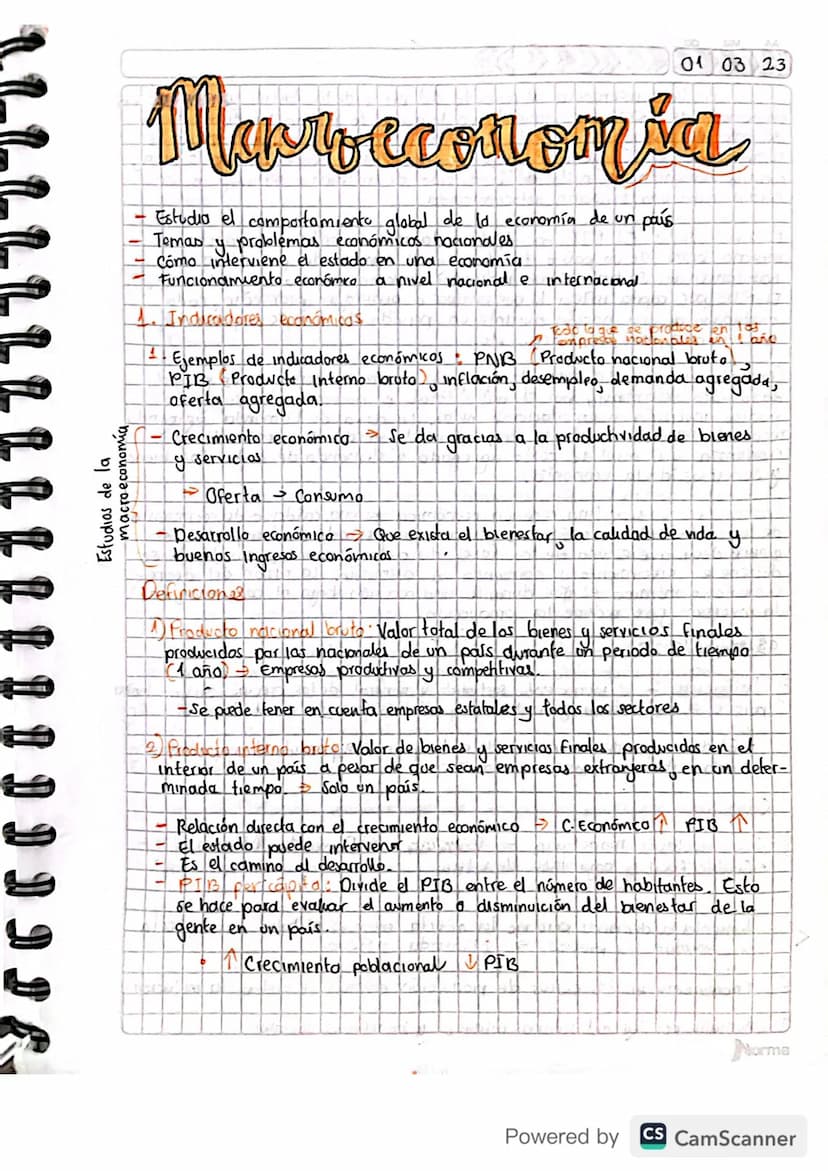 01 03 23
Macroeconomía
- Estudia el comportamiento global de la economía de un país
- Temas y problemas económicos nacionales
- Cómo interviene el estado en una economía
- Funcionamiento económico a nivel nacional e internacional
1. Indicadores económicos
Todo lo que se produce en las
empresas nacionales en 1 año
1. Ejemplos de indicadores económicos: PNB (Producto nacional bruto),
PIB (Producto Interno bruto), inflación, desempleo, demanda agregada,
oferta agregada.
Estudios de la
macroeconomía
- Crecimiento económico → Se da gracias a la productividad de bienes
y servicios
→ Oferta → Consumo
- Desarrollo económico → Que exista el bienestar, la calidad de vida y
buenos ingresos económicos.
Definiciones
1) Producto nacional bruto: Valor total de los bienes y servicios finales
producidos por las nacionales de un país durante un periodo de tiempo
(1 año) → Empresas productivas y competitivas.
- Se puede tener en cuenta empresas estatales y todos los sectores
2) Producto interno bruto: Valor de bienes y servicios finales producidos en el
interior de un país a pesar de que sean empresas extranjeras, en un deter-
minado tiempo. → Solo un país.
- Relación directa con el crecimiento económico → C. Económico ↑ PIB ↑
- El estado puede intervenir
- Es el camino al desarrollo.
- PIB per cápita: Divide el PIB entre el número de habitantes. Esto
se hace para evaluar el aumento o disminuición del bienestar de la
gente en un país.
• ↑ Crecimiento poblacional ↓ PIB
Norma
Powered by CS CamScanner